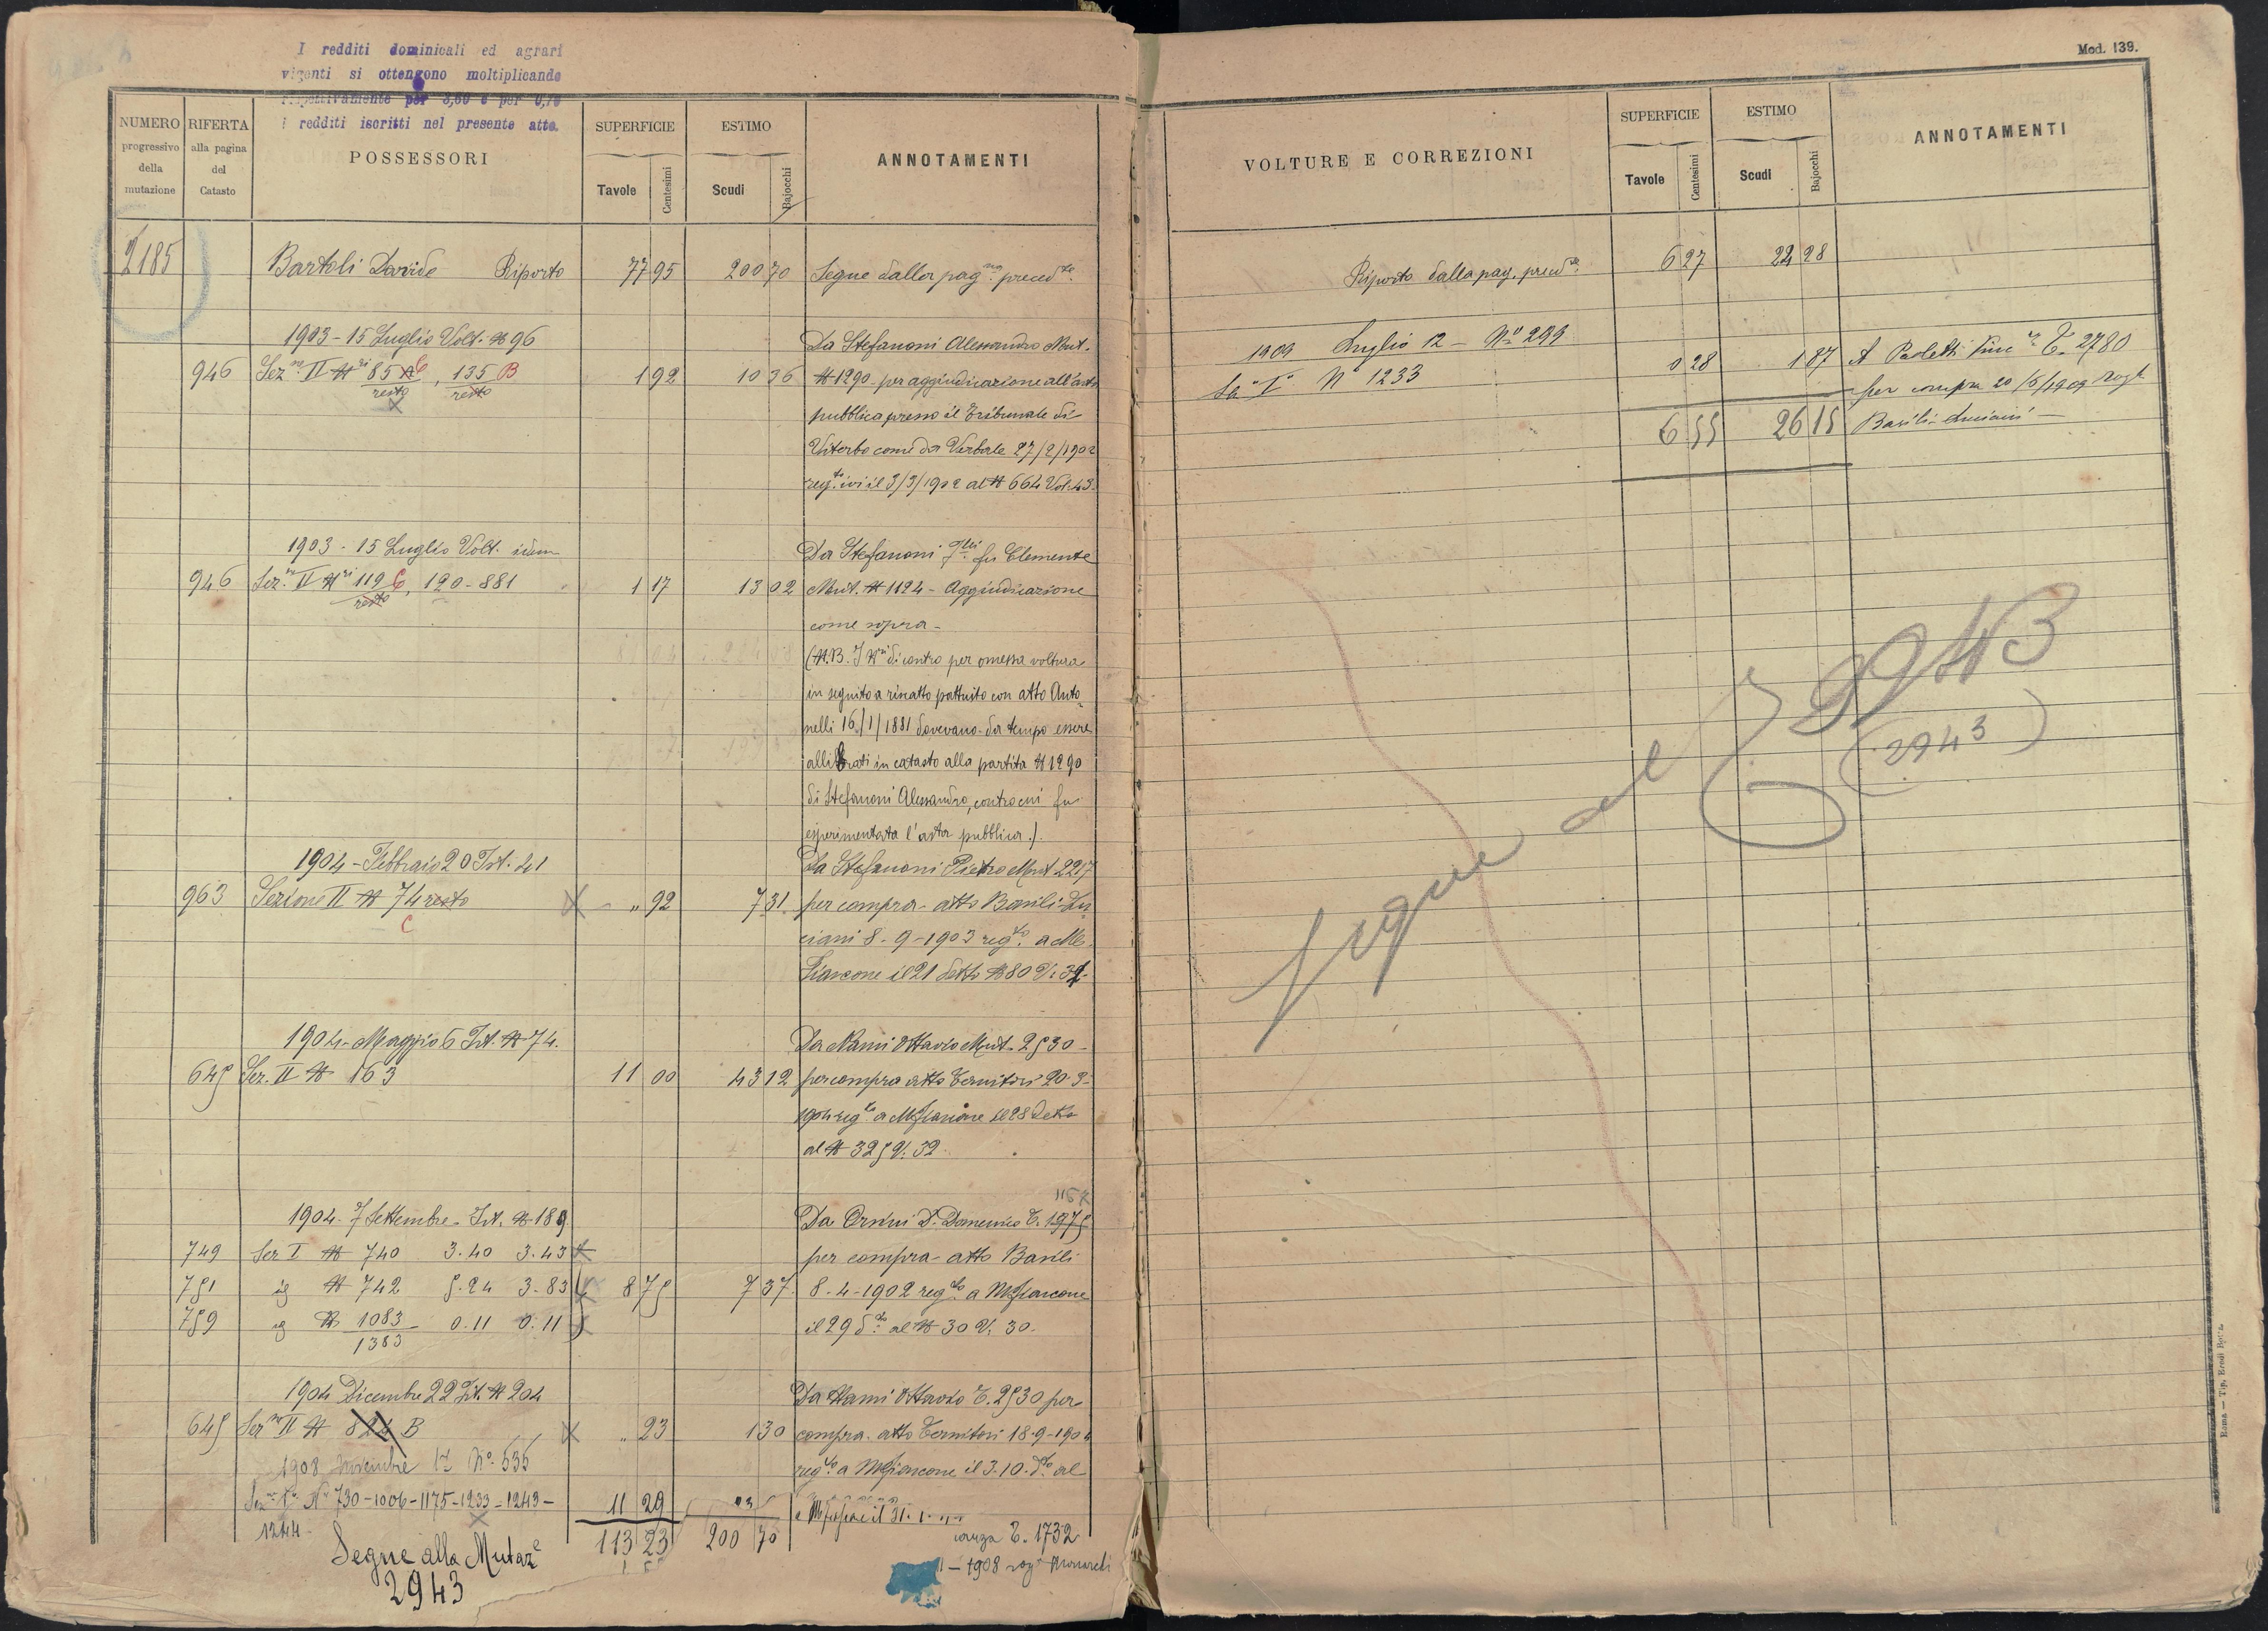 I redditi dominicali ed agrari
vigenti si ottengono moltiplicando
rispettivamente per 3,60 e per 0,70
i redditi iscritti nel presente atto.
NUMERO progressivo della mutazione
RIFERTA alla pagina del Catasto
POSSESSORI
SUPERFICIE
Tavole Centesimi
ESTIMO
Scudi Bajocchi
ANNOTAMENTI
2185 Bartoli Davide Riporto 77 95 200 70 Segue dalla pag.na preced.te
1903 - 15 Luglio Volt. N 96 Da Stefanoni Alessandro Mut.
946 Sez.ne II N.ri 85 C, 135 B 1 92 10 36 N 1290 per aggiudicazione all'asta
resto resto
pubblica presso il Tribunale di
Viterbo come da Verbale 27/2/1902
reg.to ivi il 3/3/1902 al N 664 Vol. 43.
1903 - 15 Luglio Volt. idem Da Stefanoni fu Clemente
946 Sez.ne II N.ri 119 C, 120 - 881 1 17 13 02 Mut. N 1124 - Aggiudicazione
resto
come sopra -
(N.B. I N.ri di contro per omessa voltura
in seguito a riscatto pattuito con atto Anto
nelli 16/1/1881 dovevano da tempo essere
allibrati in catasto alla partita N 1290
di Stefanoni Alessandro, contro cui fu
esperimentata l'asta pubblica.)
1904 - Febbraio 20 Ist. 41 Da Stefanoni Pietro Mut 2217
963 Sezione II N 74 resto " 92 7 31 per compra - atto Basili Lu
C
ciani 8 - 9 - 1903 reg.to a M
fiascone il 21 detto N 80 V. 32.
1904 - Maggio 6 Ist. N 74. Da Nami Ottavio Mut. 2530 -
645 Sez. II N 163 11 00 43 12 per compra atto Ternitori 20-3-
1904 reg.to a Mfiascone il 28 detto
al N 325 V. 32
1904. 7 Settembre. Ist. N 189 Da Orsini D. Domenico T. 1975
749 Sez I N 740 3.40 3.43 per compra - atto Basili
751 id N 742 5.24 3.83 8 75 7 37 8-4-1902 reg.to a Mfiascone
759 id N 1083 0.11 0.11 il 29 d.to al N 30 V. 30.
1383
1904 Dicembre 22 Ist. N 204 Da Nami Ottavio T. 2530 per
645 Sez.ne II N 824 B " 23 1 30 compra. atto Ternitori 18-9-1904
1908 Novembre N.o 535 reg.to a Mfiascone il 3.10. d.to al
Sez.ne I.a N.i 730-1006-1175-1233-1243- 11 29
1244 - 113 23 200 70
T. 1732
- 1908 rog.
Segue alla Mutaz.e
2943
Mod. 139.
VOLTURE E CORREZIONI
SUPERFICIE
Tavole Centesimi
ESTIMO
Scudi Bajocchi
ANNOTAMENTI
Riporto dalla pag. preced.te 6 27 24 28
1909 Luglio 12 - N.o 299
Sez.e I.a N.o 1233 0 28 1 87 A Paoletti T. 2780
per compra 20/6/1909 Rog.
6 55 26 15 Basili Luciani -
Segue al 2943
(2943)
Roma - Tip. Eredi Botta